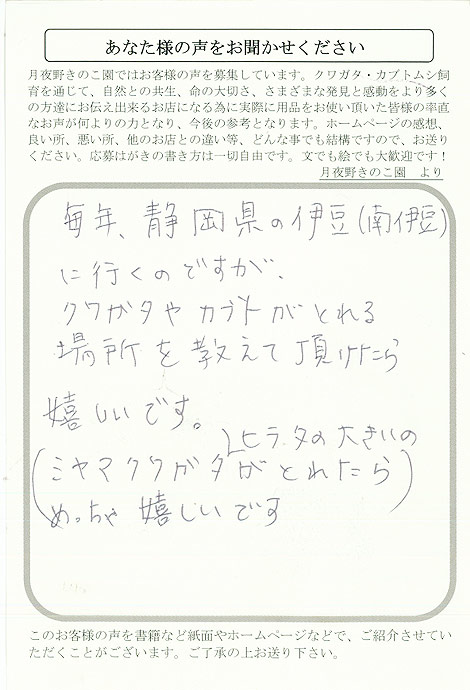 あなた様の声をお聞かせください
月夜野きのこ園ではお客様の声を募集しています。クワガタ・カブトムシ飼
育を通じて、自然との共生、命の大切さ、さまざまな発見と感動をより多く
の方達にお伝え出来るお店になる為に実際に用品をお使い頂いた皆様の率直
なお声が何よりの力となり、今後の参考となります。ホームページの感想、
良い所、悪い所、他のお店との違い等、どんな事でも結構ですので、お送り
ください。応募はがきの書き方は一切自由です。文でも絵でも大歓迎です！
月夜野きのこ園　より
毎年、静岡県の伊豆(南伊豆)
に行くのですが、
クワガタや カブトがとれる
場所を教えて頂けたら
嬉しいです。
ヒラタの大きいの
(ミヤマクワガタがとれたら
めっちゃ嬉しいです)
このお客様の声を書籍など紙面やホームページなどで、ご紹介させてい
ただくことがございます。ご了承の上お送り下さい。